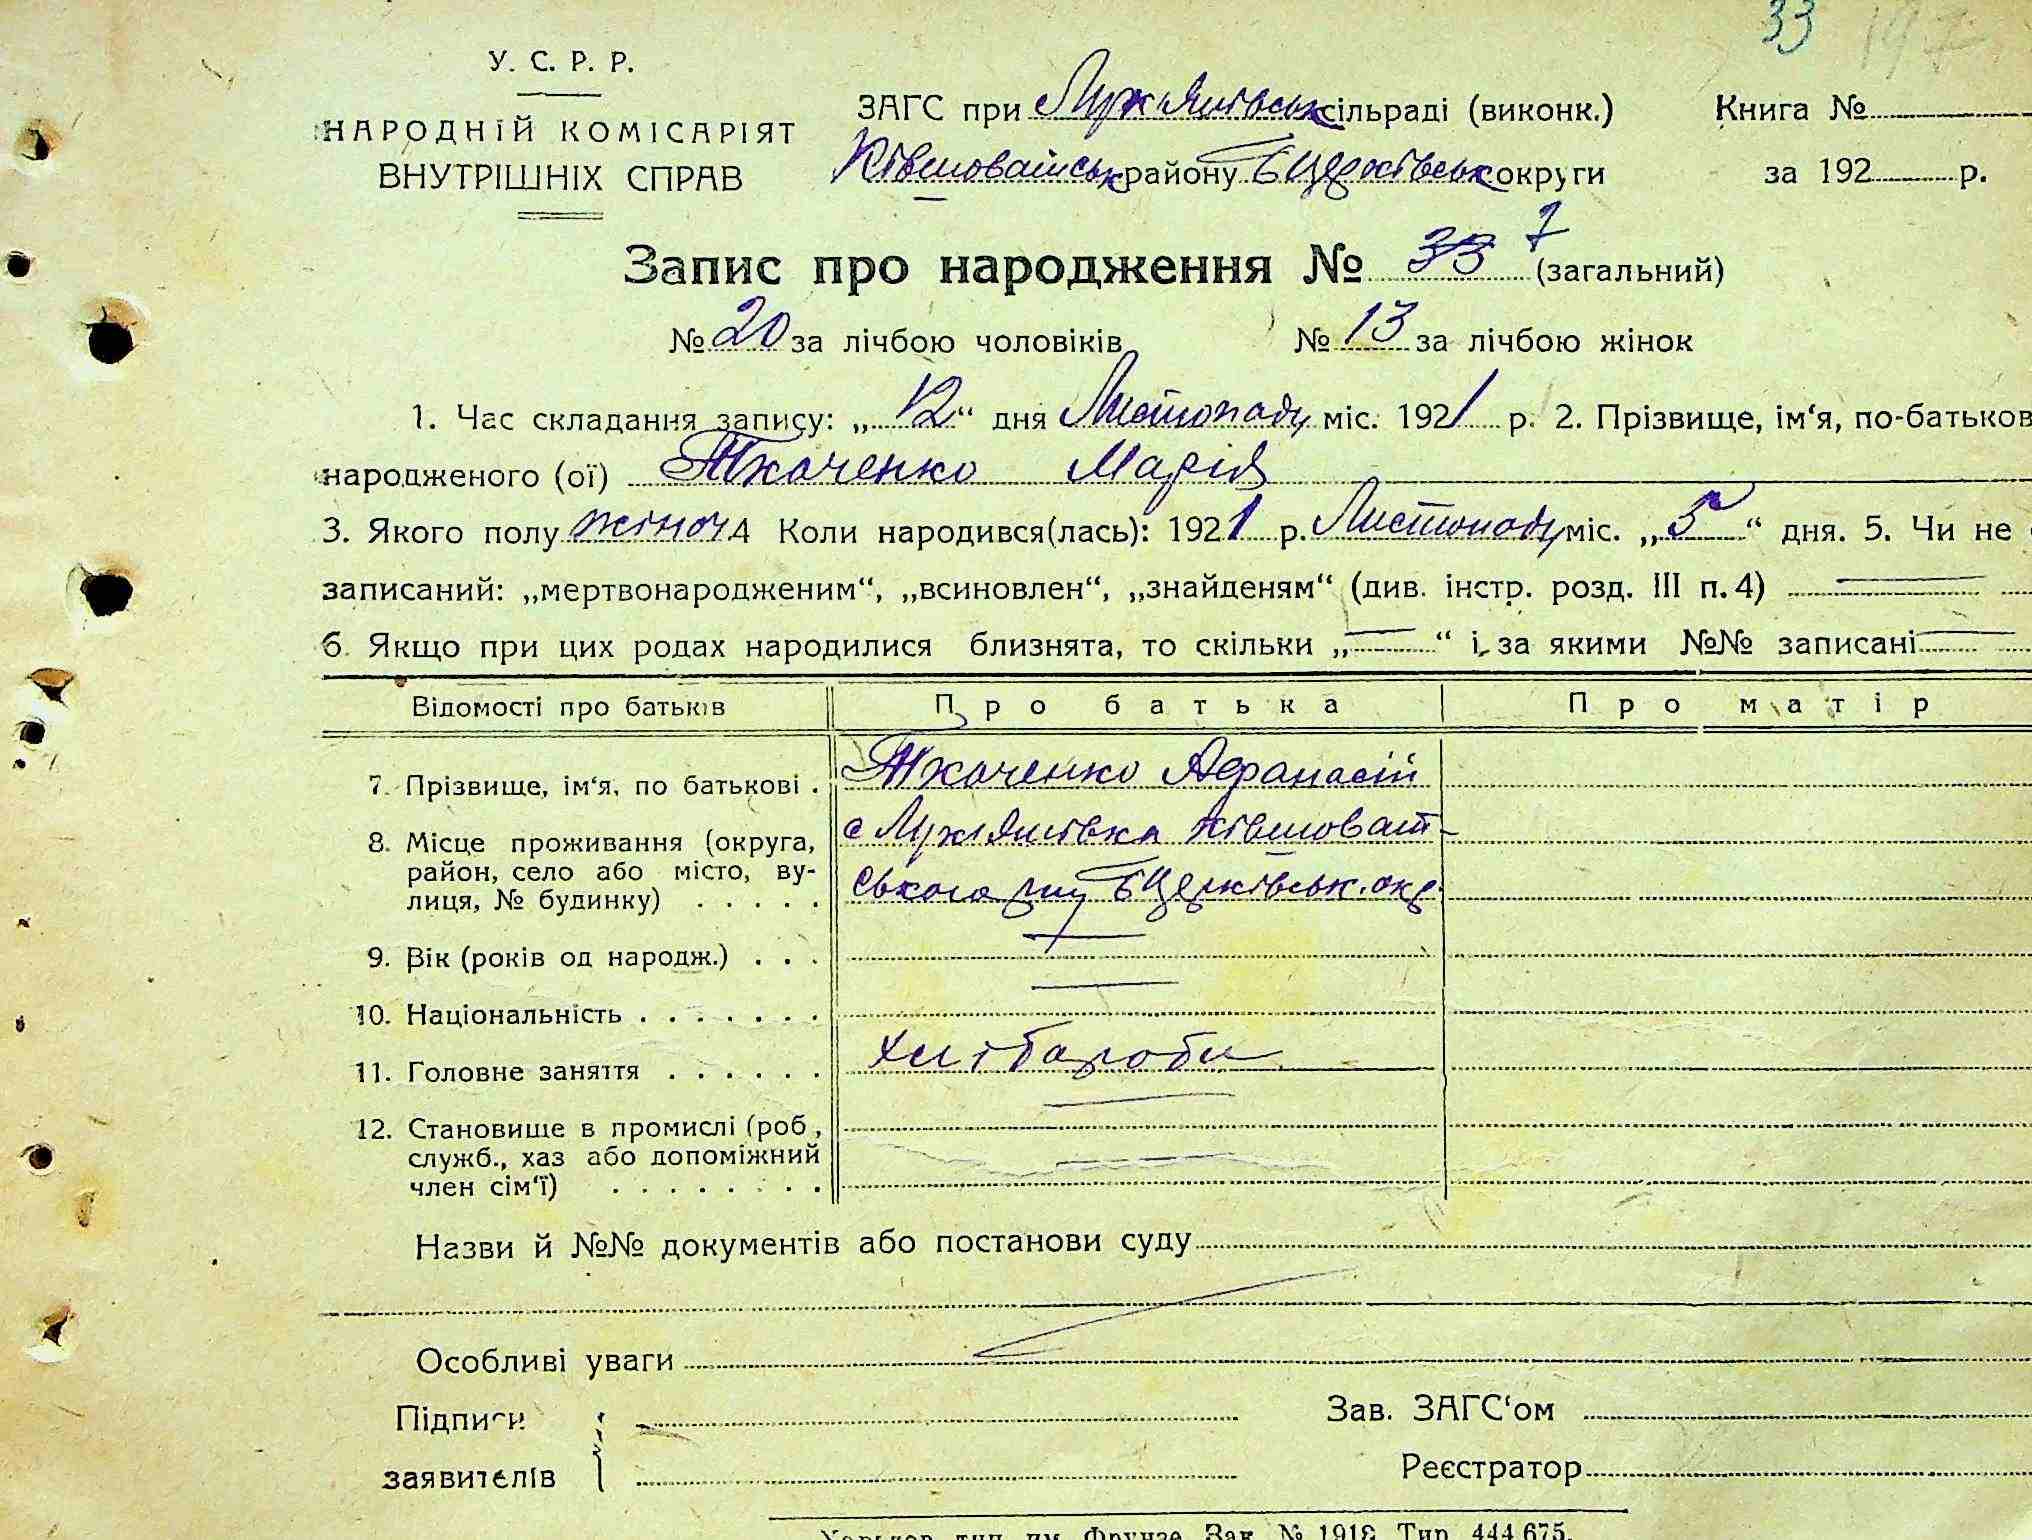 33
У. С. Р. Р.
НАРОДНІЙ КОМІСАРІЯТ
ВНУТРІШНІХ СПРАВ
ЗАГС при Лук'янівськ сільраді (виконк.) Книга №
Ківшоватськ району БЦерківськ округи за 192 р.
Запис про народження № 33 7 (загальний)
№ 20 за лічбою чоловіків № 13 за лічбою жінок
1. Час складання запису: „12“ дня Листопаду міс. 1921 р. 2. Прізвище, ім‘я, по-батьков
народженого (ої) Ткаченко Марія
3. Якого полу жіноч 4 Коли народився(лась): 1921 р. Листопаду міс. „5“ дня. 5. Чи не
записаний: „мертвонародженим“, „всиновлен“, „знайденям“ (див. інстр. розд. III п. 4)
6. Якщо при цих родах народилися близнята, то скільки „ “ і за якими №№ записані
Відомості про батьків Про батька Про матір
7. Прізвище, ім‘я, по батькові . Ткаченко Афанасій
8. Місце проживання (округа, район, село або місто, ву-
лиця, № будинку) . . . . . с Лук'янівка Ківшоват-
ського р-ну БЦерківськ. окр.
9. Вік (років од народж.) . . .
10. Національність . . . . . . .
11. Головне заняття . . . . . . Хлібороби
12. Становище в промислі (роб.,
служб., хаз або допоміжний
член сім‘ї) . . . . . . . .
Назви й №№ документів або постанови суду
Особливі уваги
Підписи
заявителів
Зав. ЗАГС‘ом
Реєстратор
Харьков, тип. им. Фрунзе Зак. № 1918 Тир. 444.675.